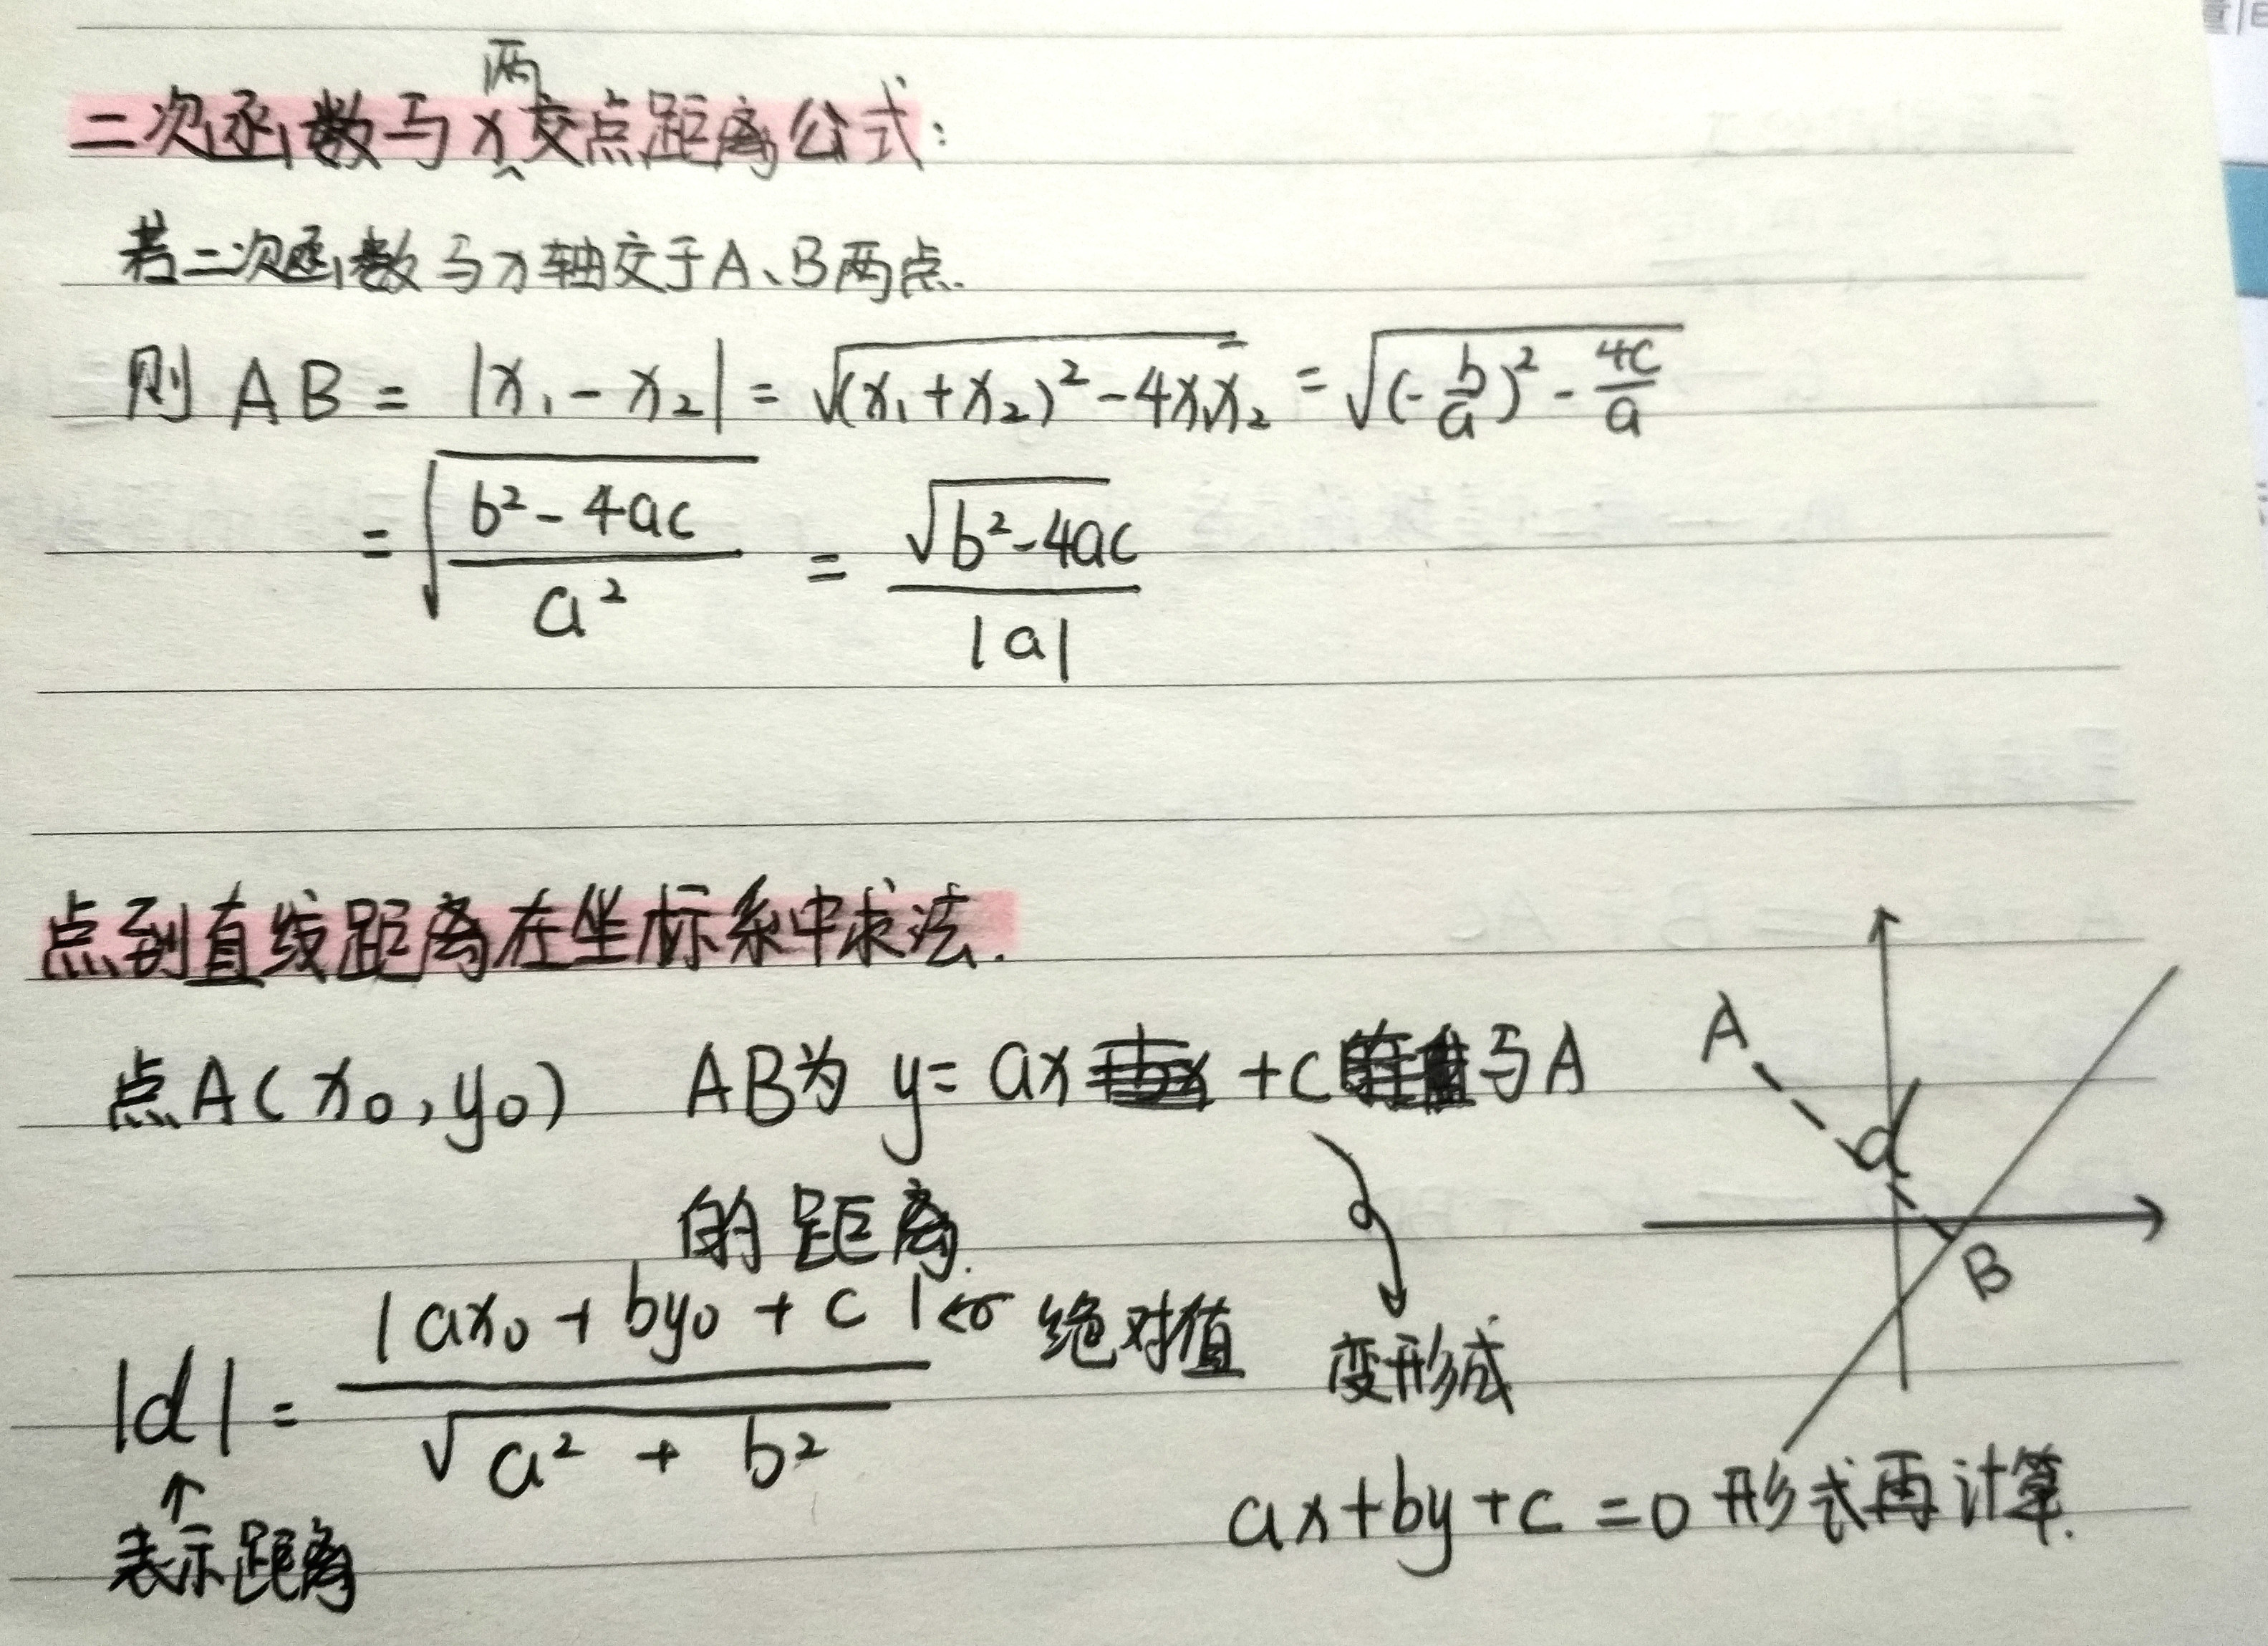 二次函数与x两交点距离公式:
若二次函数与x轴交于A、B两点.
则 AB = |x₁-x₂| = √((x₁+x₂)²-4x₁x₂) = √((-b/a)²-4c/a)
= √((b²-4ac)/a²) = √(b²-4ac)/|a|
点到直线距离在坐标系中求法.
点A(x₀,y₀) AB为 y= ax +c 与A
的距离.
|d| = |ax₀+by₀+c|/√(a²+b²) ← 绝对值
↑
表示距离
变形成
ax+by+c=0 形式再计算.
A
d
B